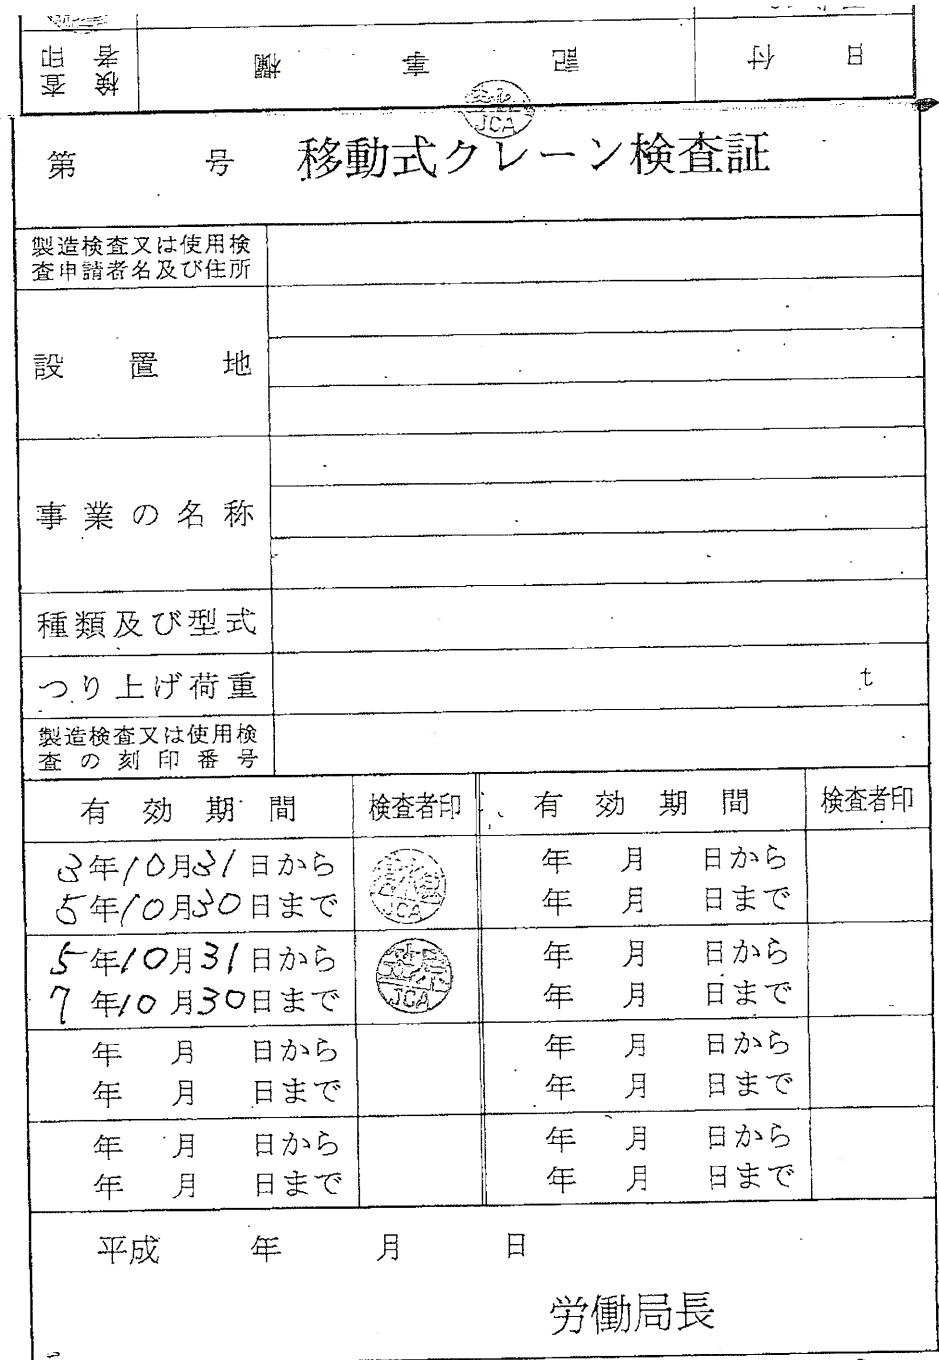 検査者印 記事欄 日付
JCA
第 号 移動式クレーン検査証
製造検査又は使用検
査申請者名及び住所
設置地
事業の名称
種類及び型式
つり上げ荷重 t
製造検査又は使用検
査の刻印番号
有効期間 検査者印 有効期間 検査者印
3年10月31日から 年 月 日から
5年10月30日まで 年 月 日まで
JCA
5年10月31日から 年 月 日から
7年10月30日まで 年 月 日まで
JCA
年 月 日から 年 月 日から
年 月 日まで 年 月 日まで
年 月 日から 年 月 日から
年 月 日まで 年 月 日まで
平成 年 月 日
労働局長